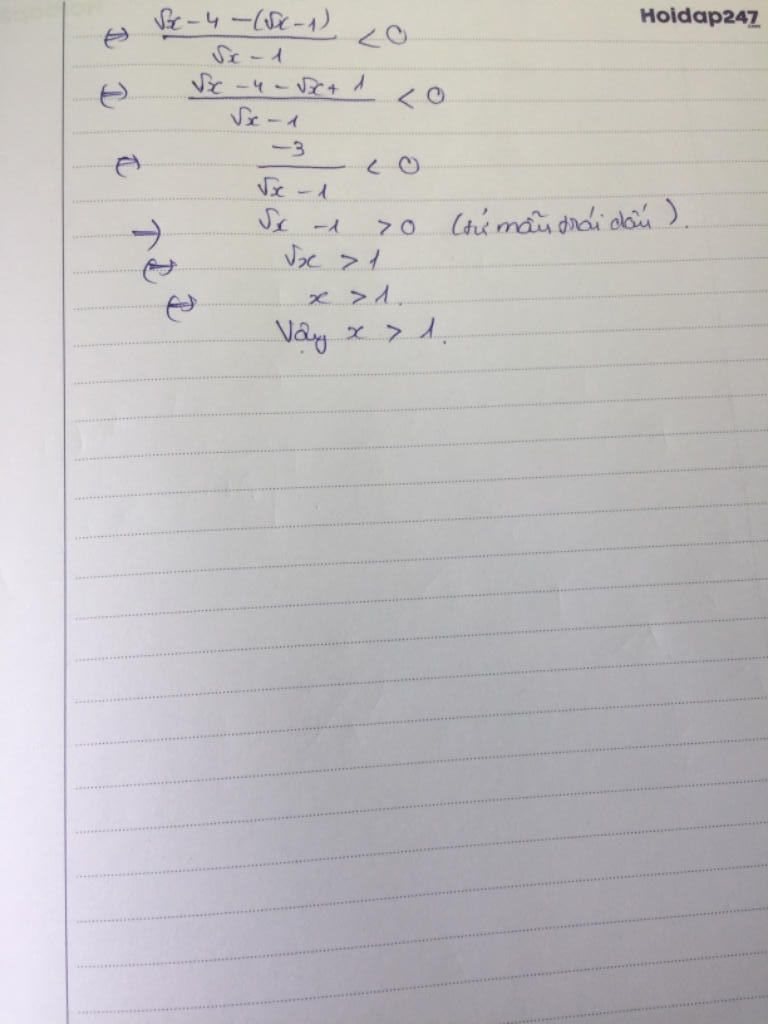 Hoidap247
⇔ (√x - 4 - (√x - 1))/(√x - 1) < 0
⇔ (√x - 4 - √x + 1)/(√x - 1) < 0
⇔ -3/(√x - 1) < 0
→ √x - 1 > 0 (tử mẫu trái dấu).
⇔ √x > 1
⇔ x > 1.
Vậy x > 1.